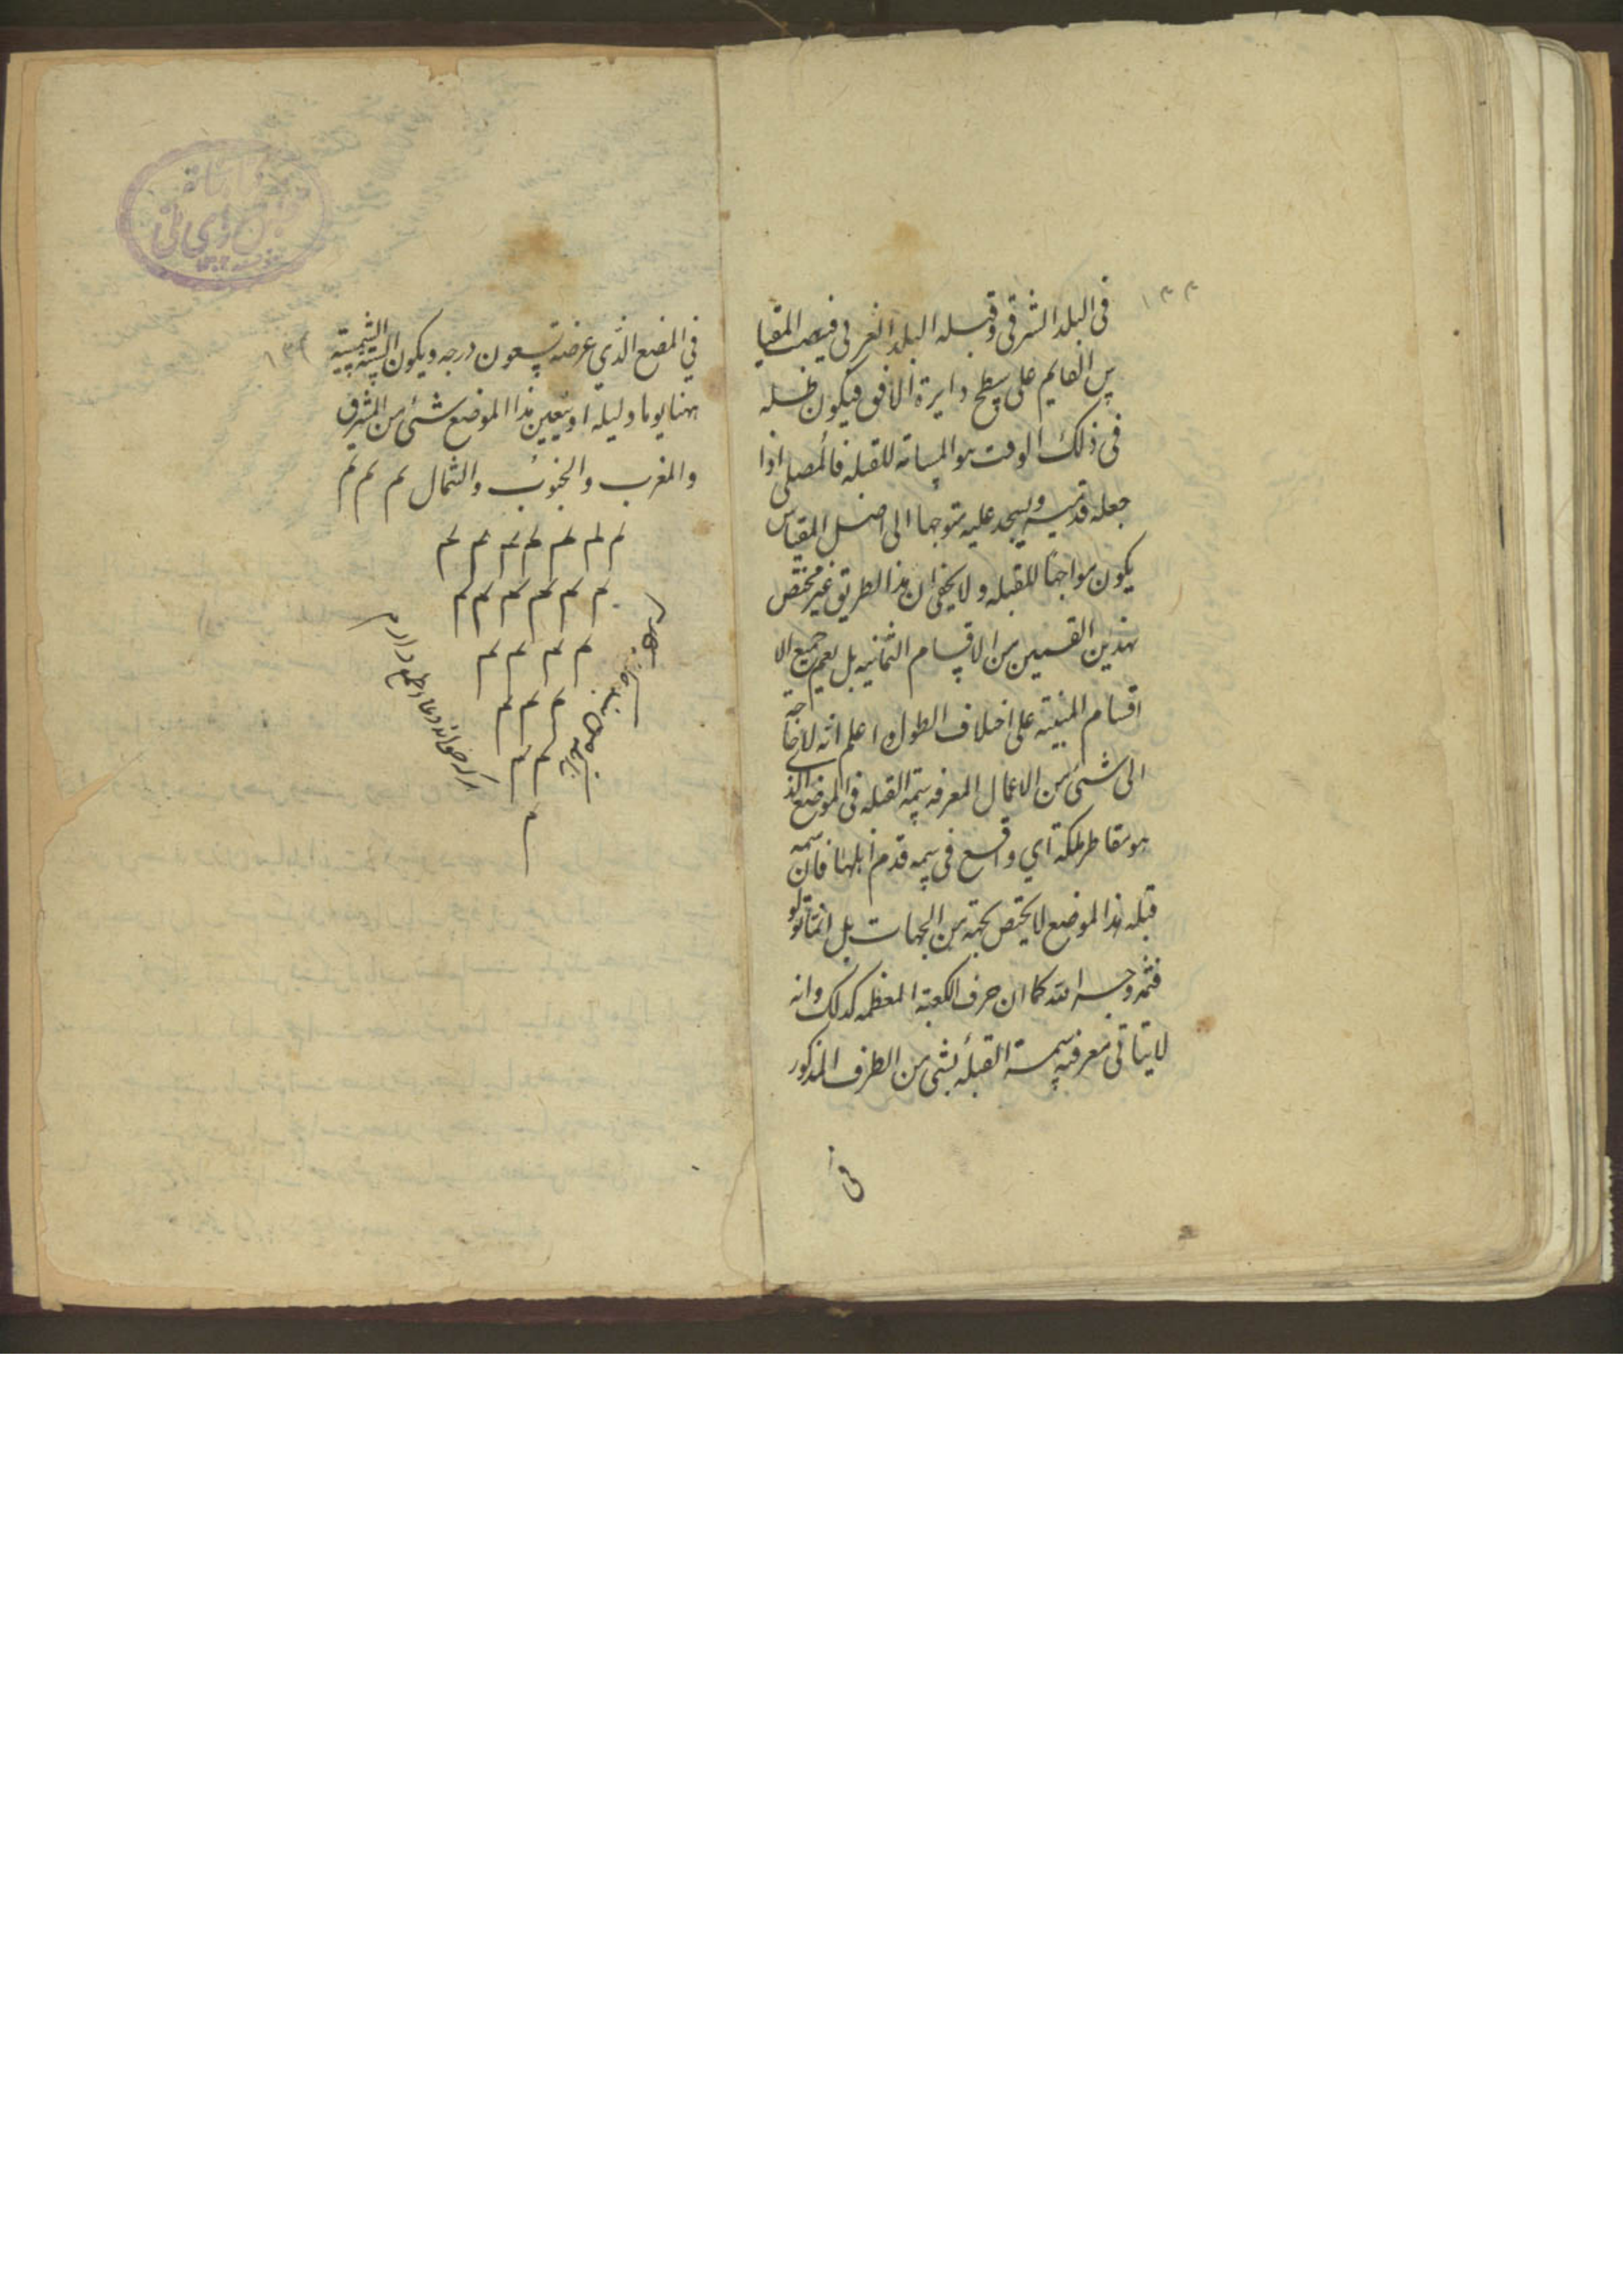 ١٣٣
فى البلد الشرقى وقبله البلد الغربى فينصب المقيا
س القايم على سطح دايرة الافق فيكون ظله
فى ذلك الوقت هو المسامته للقبله فالمصلى اذا
جعله قدميه ويسجد عليه متوجها الى اصل المقياس
يكون مواجها للقبله ولا يخفى ان هذا الطريق غير مختص
بهذين القسمين من الاقسام الثمانيه بل يعم جميع الا
اقسام المبنيته على اختلاف الطول اعلم انه لا حاجة
الى شئ من الاعمال المعرفه سمة القبله فى الموضع الذ
هو مقاطر مكة اي واقع فى سمه قدم اهلها فان سمه
قبله هذا الموضع لا يختص بجهة من الجهات بل اينما تولو
فثم وجه الله كما ان حرف الكعبة المعظمه كذلك وانه
لا يتاتى معرفته سمة القبله بشئ من الطرف المذكور
فى
١٣٤
في المضع الذي عرضه تسعون درجه ويكون السنة الشمسية
ههنا يوما وليله اويتعين هذا الموضع شئ من المشرق
والمغرب والجنوب والشمال م م م
م م م م م م م
م م م م م م
م م م م
م م م
م م
م
هركه خواند دعا طمع دارم
زانكه من بنده كنه كارم